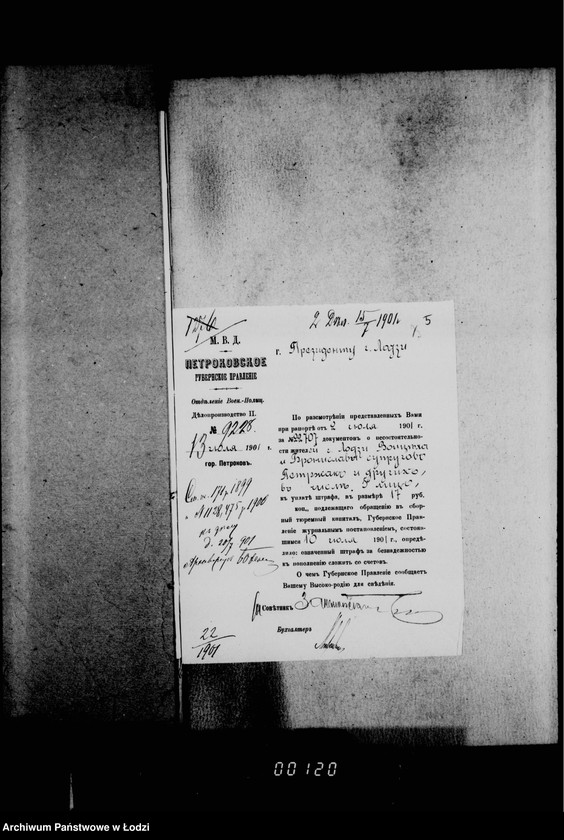 2 Дѣл. 15/7 1901 г.
5
М. В. Д.
г. Президенту г. Лодзи
ПЕТРОКОВСКОЕ
ГУБЕРНСКОЕ ПРАВЛЕНІЕ
Отдѣленіе Воен.-Полиц.
Дѣлопроизводство II.
№ 9228.
13 іюля 1901 г.
гор. Петроковъ.
По разсмотрѣніи представленныхъ Вами
при рапортѣ отъ 2 іюля 1901 г.
за № 22707 документовъ о несостоятельно-
сти жителей г. Лодзи Войцѣха
и Брониславы супруговъ
и другихъ,
въ числѣ 9 лицъ,
къ уплатѣ штрафа, въ размѣрѣ 17 руб.
коп., подлежащаго обращенію въ сбор-
ный тюремный капиталъ, Губернское Прав-
леніе журнальнымъ постановленіемъ, состояв-
шимся 10 іюля 1901 г., опредѣ-
лило: означенный штрафъ за безнадежностью
къ пополненію сложить со счетовъ.
О чемъ Губернское Правленіе сообщаетъ
Вашему Высоко-родію для свѣдѣнія.
1899
1900
901
За Совѣтникъ
Бухгалтеръ
22/1901
00120
Archiwum Państwowe w Łodzi